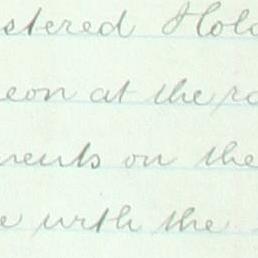 stered Hold
eon at the ra
ments on the
e with the